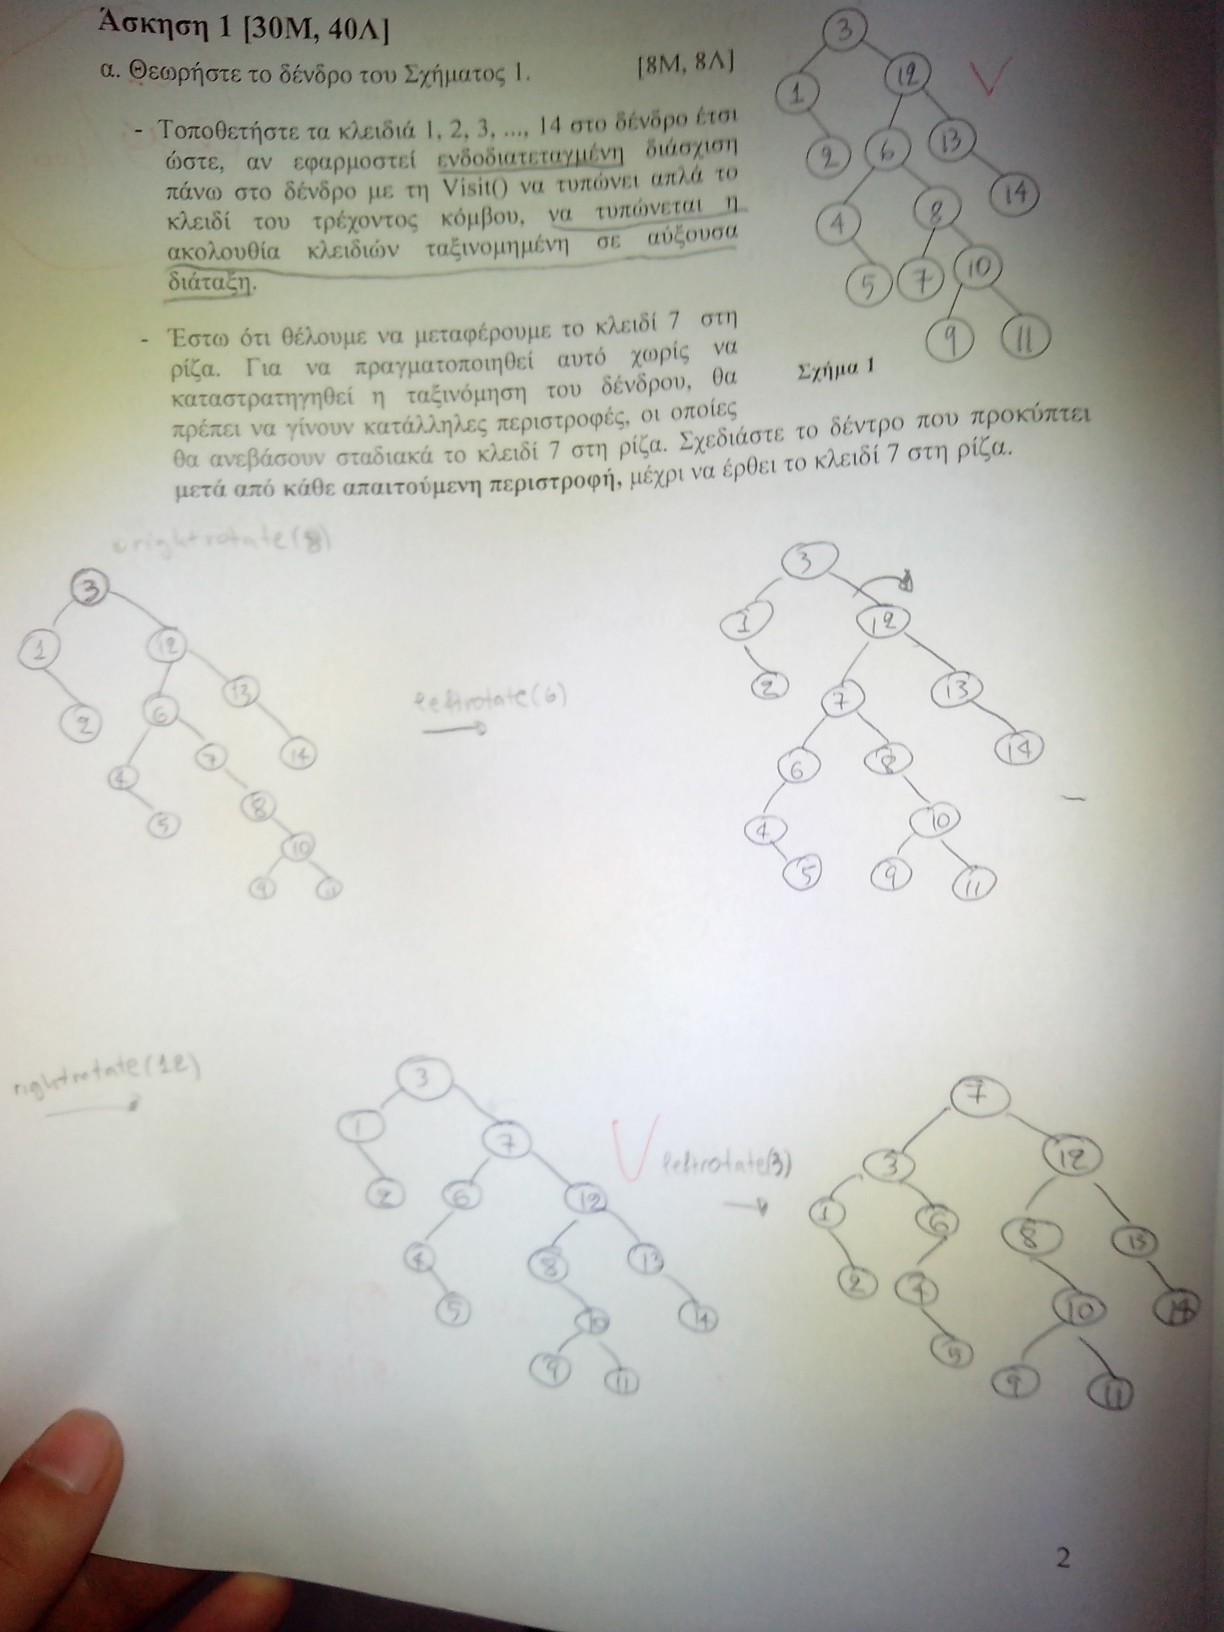 Άσκηση 1 [30Μ, 40Λ]
α. Θεωρήστε το δένδρο του Σχήματος 1. [8Μ, 8Λ]
- Τοποθετήστε τα κλειδιά 1, 2, 3, ..., 14 στο δένδρο έτσι
ώστε, αν εφαρμοστεί ενδοδιατεταγμένη διάσχιση
πάνω στο δένδρο με τη Visit() να τυπώνει απλά το
κλειδί του τρέχοντος κόμβου, να τυπώνεται η
ακολουθία κλειδιών ταξινομημένη σε αύξουσα
διάταξη.
3
12
1
2
6
13
4
8
14
5
7
10
9
11
Σχήμα 1
- Έστω ότι θέλουμε να μεταφέρουμε το κλειδί 7 στη
ρίζα. Για να πραγματοποιηθεί αυτό χωρίς να
καταστρατηγηθεί η ταξινόμηση του δένδρου, θα
πρέπει να γίνουν κατάλληλες περιστροφές, οι οποίες
θα ανεβάσουν σταδιακά το κλειδί 7 στη ρίζα. Σχεδιάστε το δέντρο που προκύπτει
μετά από κάθε απαιτούμενη περιστροφή, μέχρι να έρθει το κλειδί 7 στη ρίζα.
rightrotate(8)
3
1
12
2
6
13
4
7
14
5
8
10
9
11
leftrotate(6)
3
1
12
2
7
13
6
8
14
4
10
5
9
11
rightrotate(12)
3
1
7
2
6
12
4
8
13
5
10
14
9
11
leftrotate(3)
7
3
12
1
6
8
13
2
4
10
14
5
9
11
2